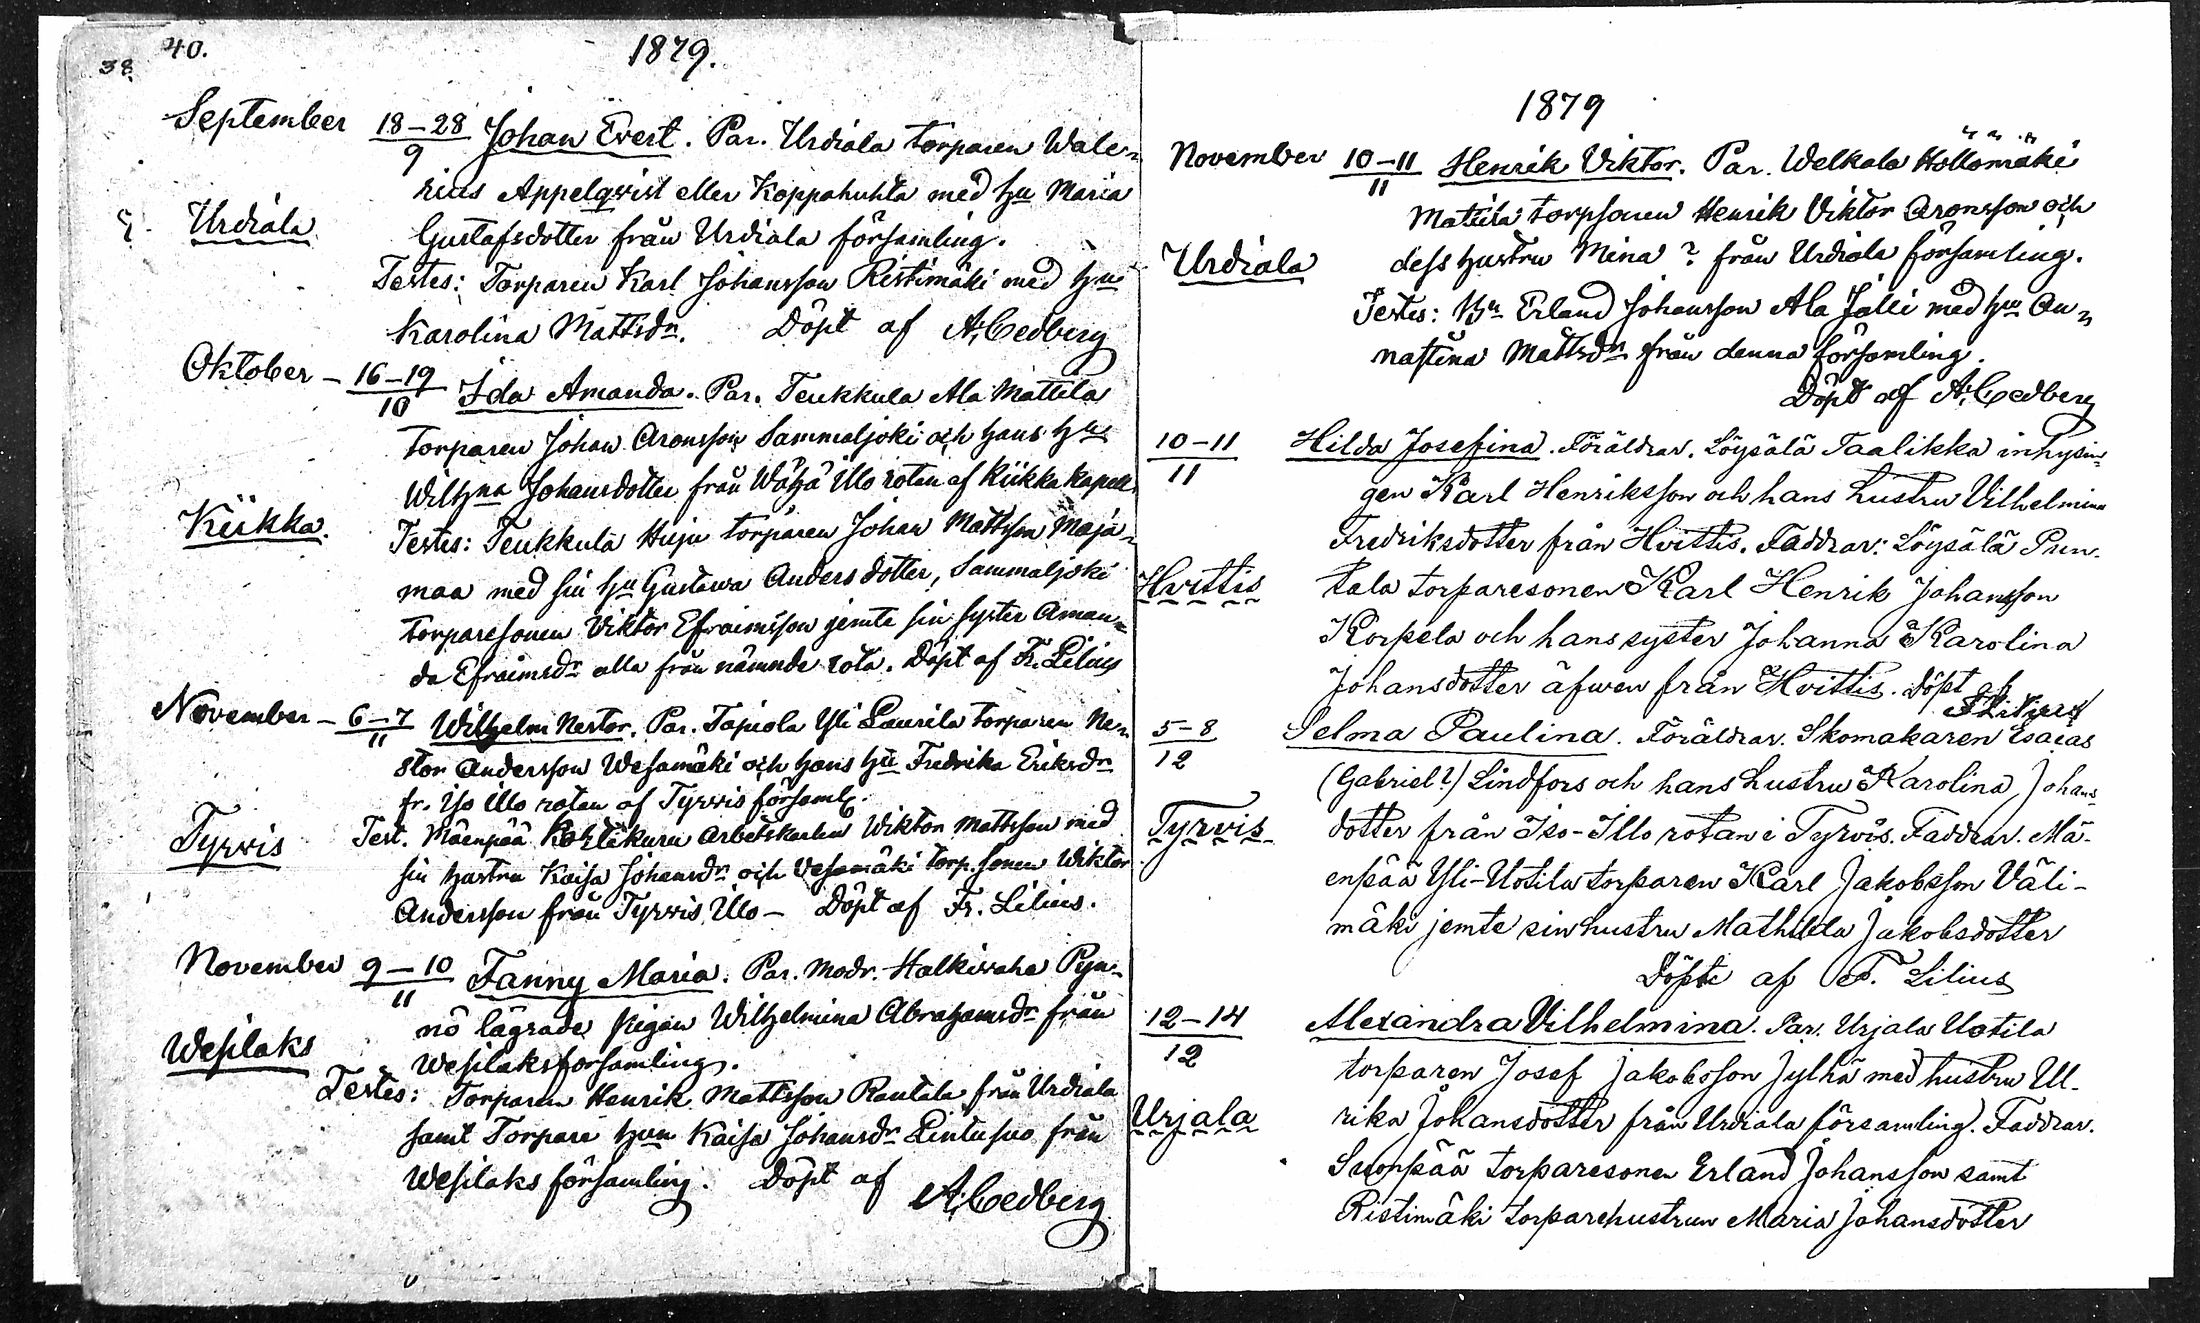 40.
38.
1879.
September 18-28/9 Johan Evert. Par. Urdiala torparen Wale-
rius Appelqvist eller Koppahuhta med hu Maria
Urdiala Gustafsdotter från Urdiala församling.
Testes: Torparen Karl Johansson Ristimäki med hu
Karolina Mattsdr. Döpt af A. Cedberg
Oktober - 16-19/10 Ida Amanda. Par. Teukkula Ala Mattila
torparen Johan Aronsson Sammaljoki och hans hu
Wilhna Johansdotter från Wähä Illo rotan af Kiikka kapell.
Kiikka. Testes: Teukkula Huju torparen Johan Mattsson Maja-
maa med sin hu Gustawa Andersdotter, Sammaljoki
torparesonen Viktor Efraimsson jemte sin syster Aman-
da Efraimsdr alla från nämnde rota. Döpt af Fr. Lilius
November - 6-7/11 Wilhelm Nestor. Par. Tapiola Yli Laurila torparen Ne-
stor Andersson Wesamäki och hans hu Fredrika Eriksdr
fr. Iso Illo rotan af Tyrvis församlg.
Tyrvis Test. Mäenpää arbetskarlen Wiktor Mattsson med
sin hustru Kaisa Johansdr och Vesamäki torp.sonen Wiktor
Andersson från Tyrvis Illo - Döpt af Fr. Lilius.
November 9-10/11 Fanny Maria. Par. Modr. Halkivaha Pyn-
nö lägrade pigan Wilhelmina Abrahamsdr från
Wesilaks Wesilaks församling.
Testes: Torparen Henrik Mattsson Rautala från Urdiala
samt Torpare hun Kaisa Johansdr Lintusuo från
Wesilaks församling. Döpt af A. Cedberg
1879
November 10-11/11 Henrik Viktor. Par. Welkala Höllömäki
Mattila torpsonen Henrik Viktor Aronsson och
Urdiala dess hustru Mina ? från Urdiala församling.
Testes: Bn Erland Johansson Ala Jälli med hu An-
nastina Mattsdr från denna församling.
Döpt af A. Cedberg
10-11/11 Hilda Josefina. Föräldrar. Löysälä Taalikka inhysin-
gen Karl Henriksson och hans hustru Vilhelmina
Fredriksdotter från Hvittis. Faddrar: Löysälä Pun-
Hvittis tala torparesonen Karl Henrik Johansson
Korpela och hans syster Johanna Karolina
Johansdotter äfwen från Hvittis. Döpt af
F Lilius
5-8/12 Selma Paulina. Föräldrar. Skomakaren Esaias
(Gabriel?) Lindfors och hans hustru Karolina Johans-
Tyrvis dotter från Iso-Illo rotan i Tyrvis. Faddrar. Mä-
enpää Yli-Uotila torparen Karl Jakobsson Väli-
mäki jemte sin hustru Mathilda Jakobsdotter
Döpte af F. Lilius
12-14/12 Alexandra Vilhelmina. Par. Urjala Uotila
torparen Josef Jakobsson Jylhä med hustru Ul-
Urjala rika Johansdotter från Urdiala församling. Faddrar.
Suonpää torparesonen Erland Johansson samt
Ristimäki torparehustrun Maria Johansdotter